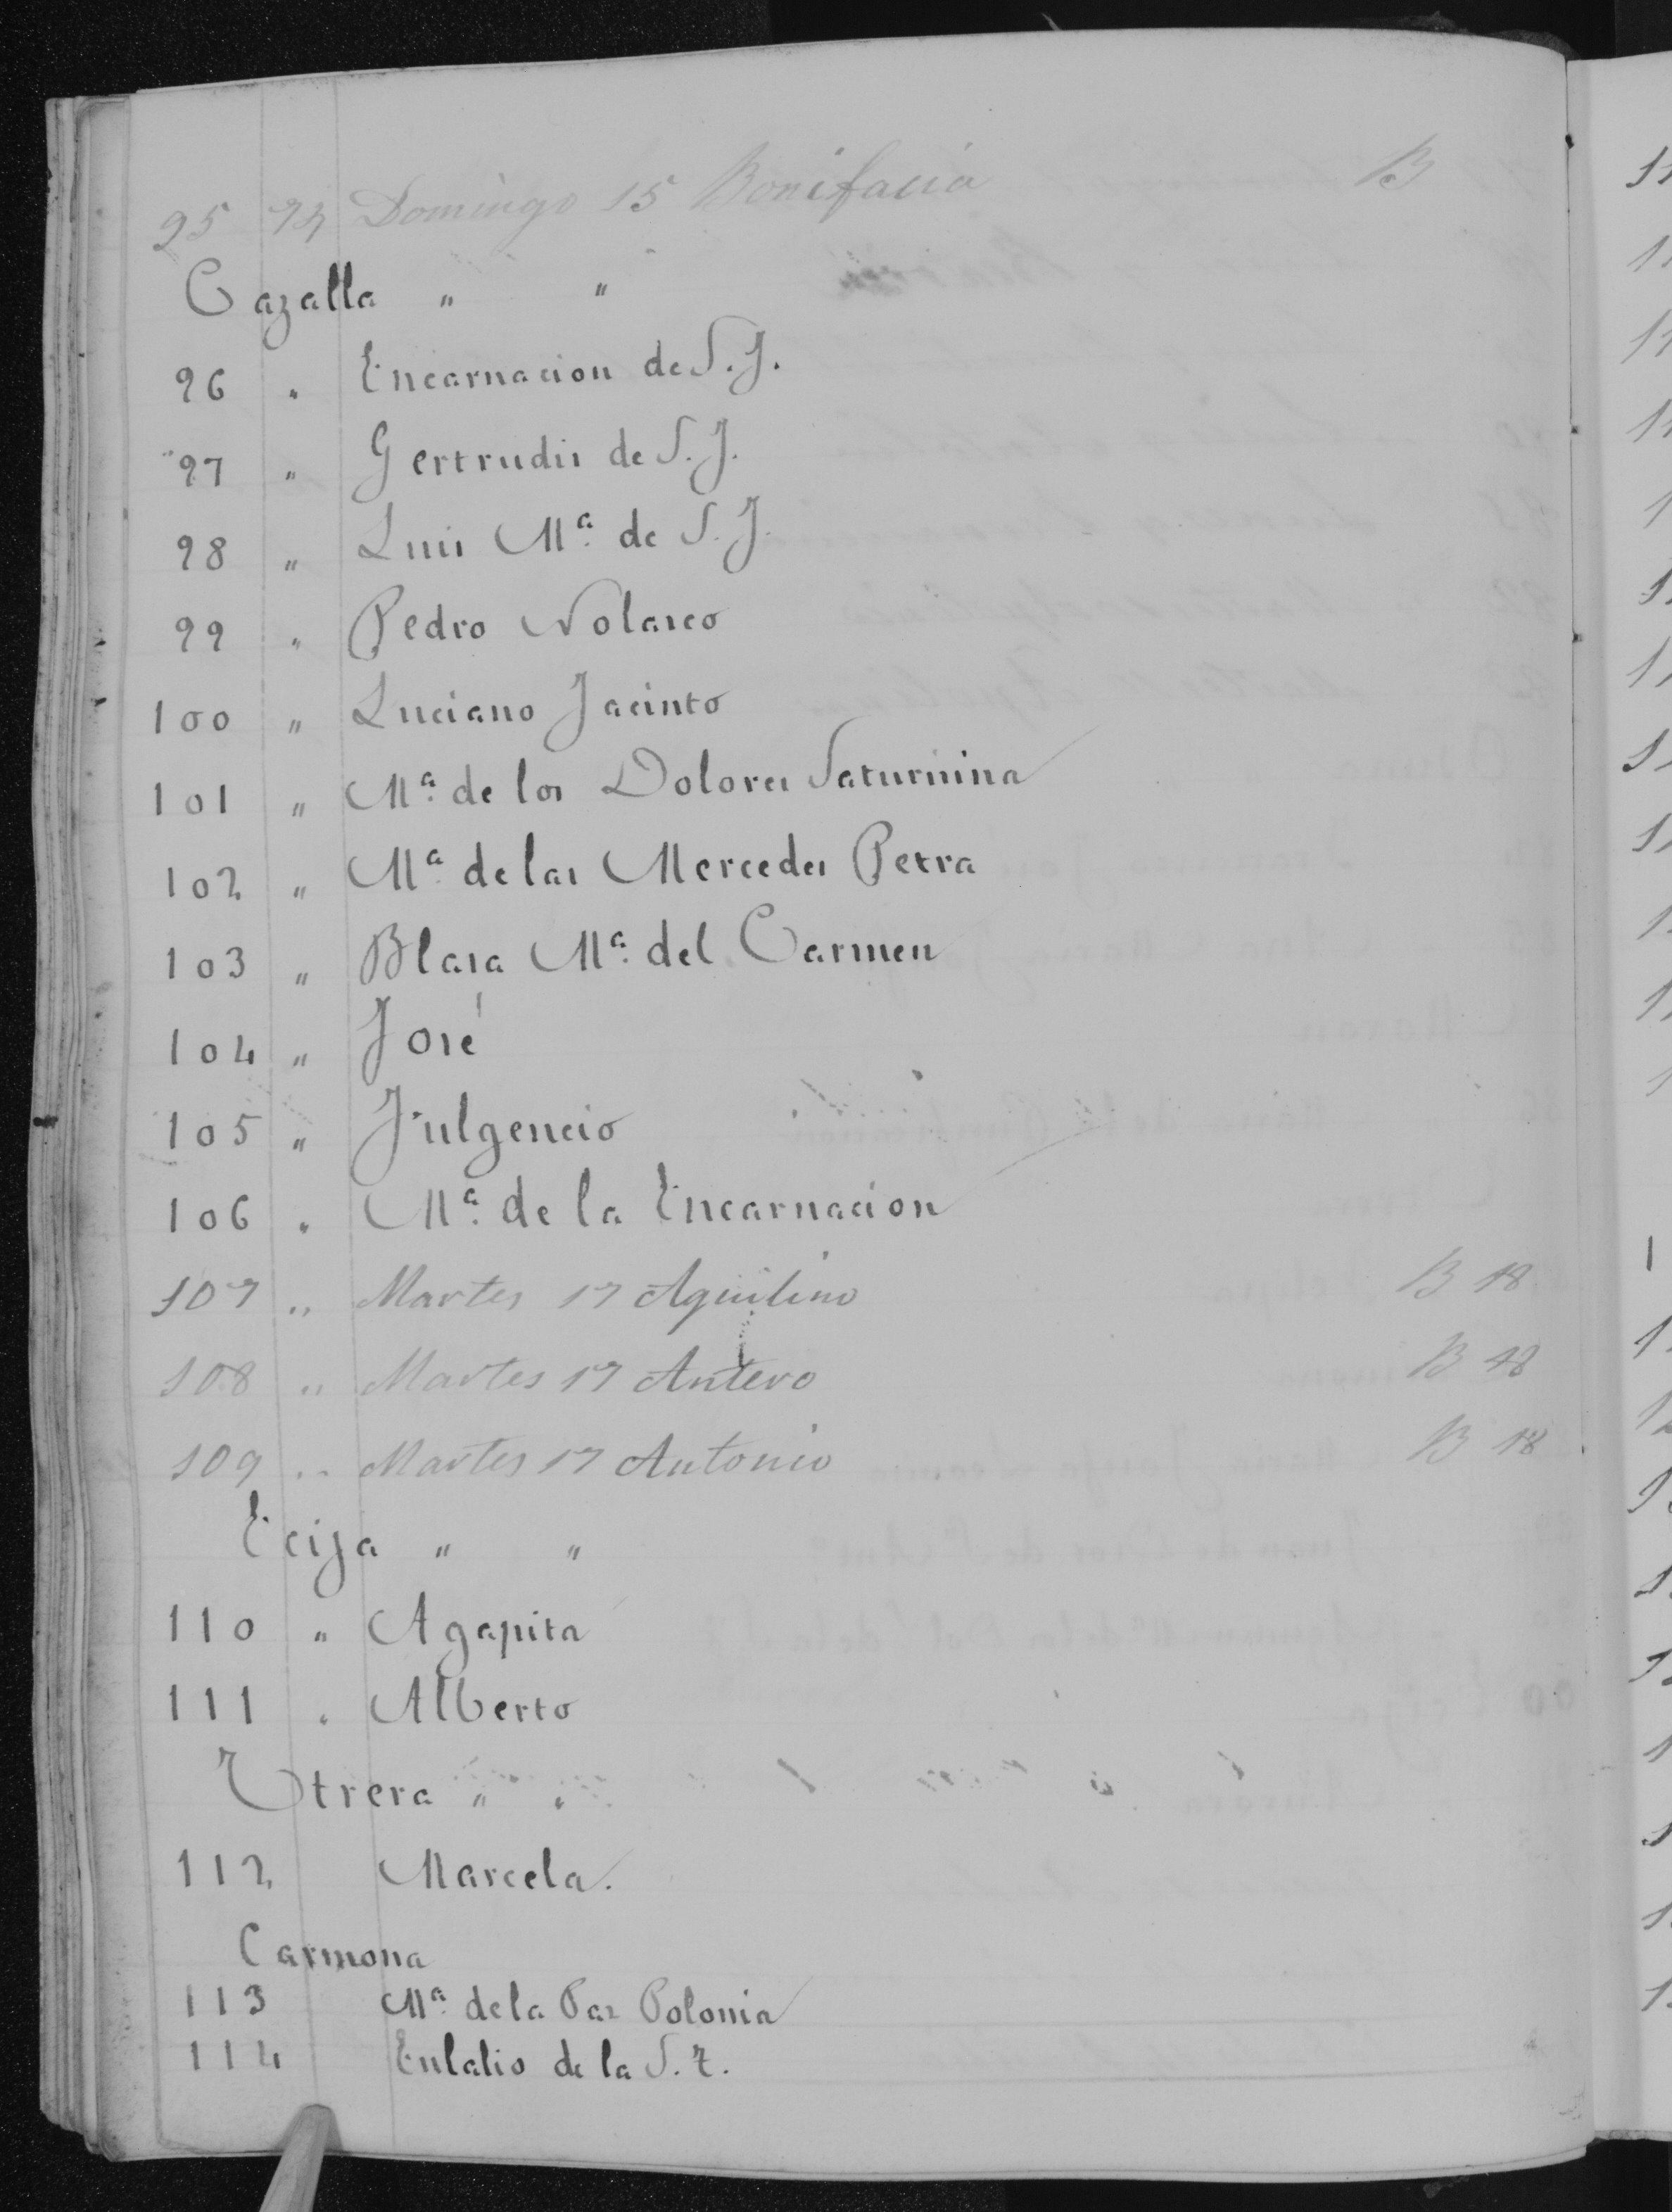 95 94 Domingo 15 Bonifacia B
Cazalla " "
96 " Encarnacion de S. J.
97 " Gertrudis de S. J.
98 " Luis Mª de S. J.
99 " Pedro Nolasco
100 " Luciano Jacinto
101 " Mª de los Dolores Saturnina
102 " Mª de las Mercedes Petra
103 " Blasa Mª del Carmen
104 " José
105 " Fulgencio
106 " Mª de la Encarnacion
107 " Martes 17 Aquilino B 18
108 " Martes 17 Antero B 18
109 " Martes 17 Antonio B 18
Ecija " "
110 " Agapita
111 " Alberto
Utrera " "
112 Marcela.
Carmona
113 Mª de la Paz Polonia
114 Eulalio de la S. T.